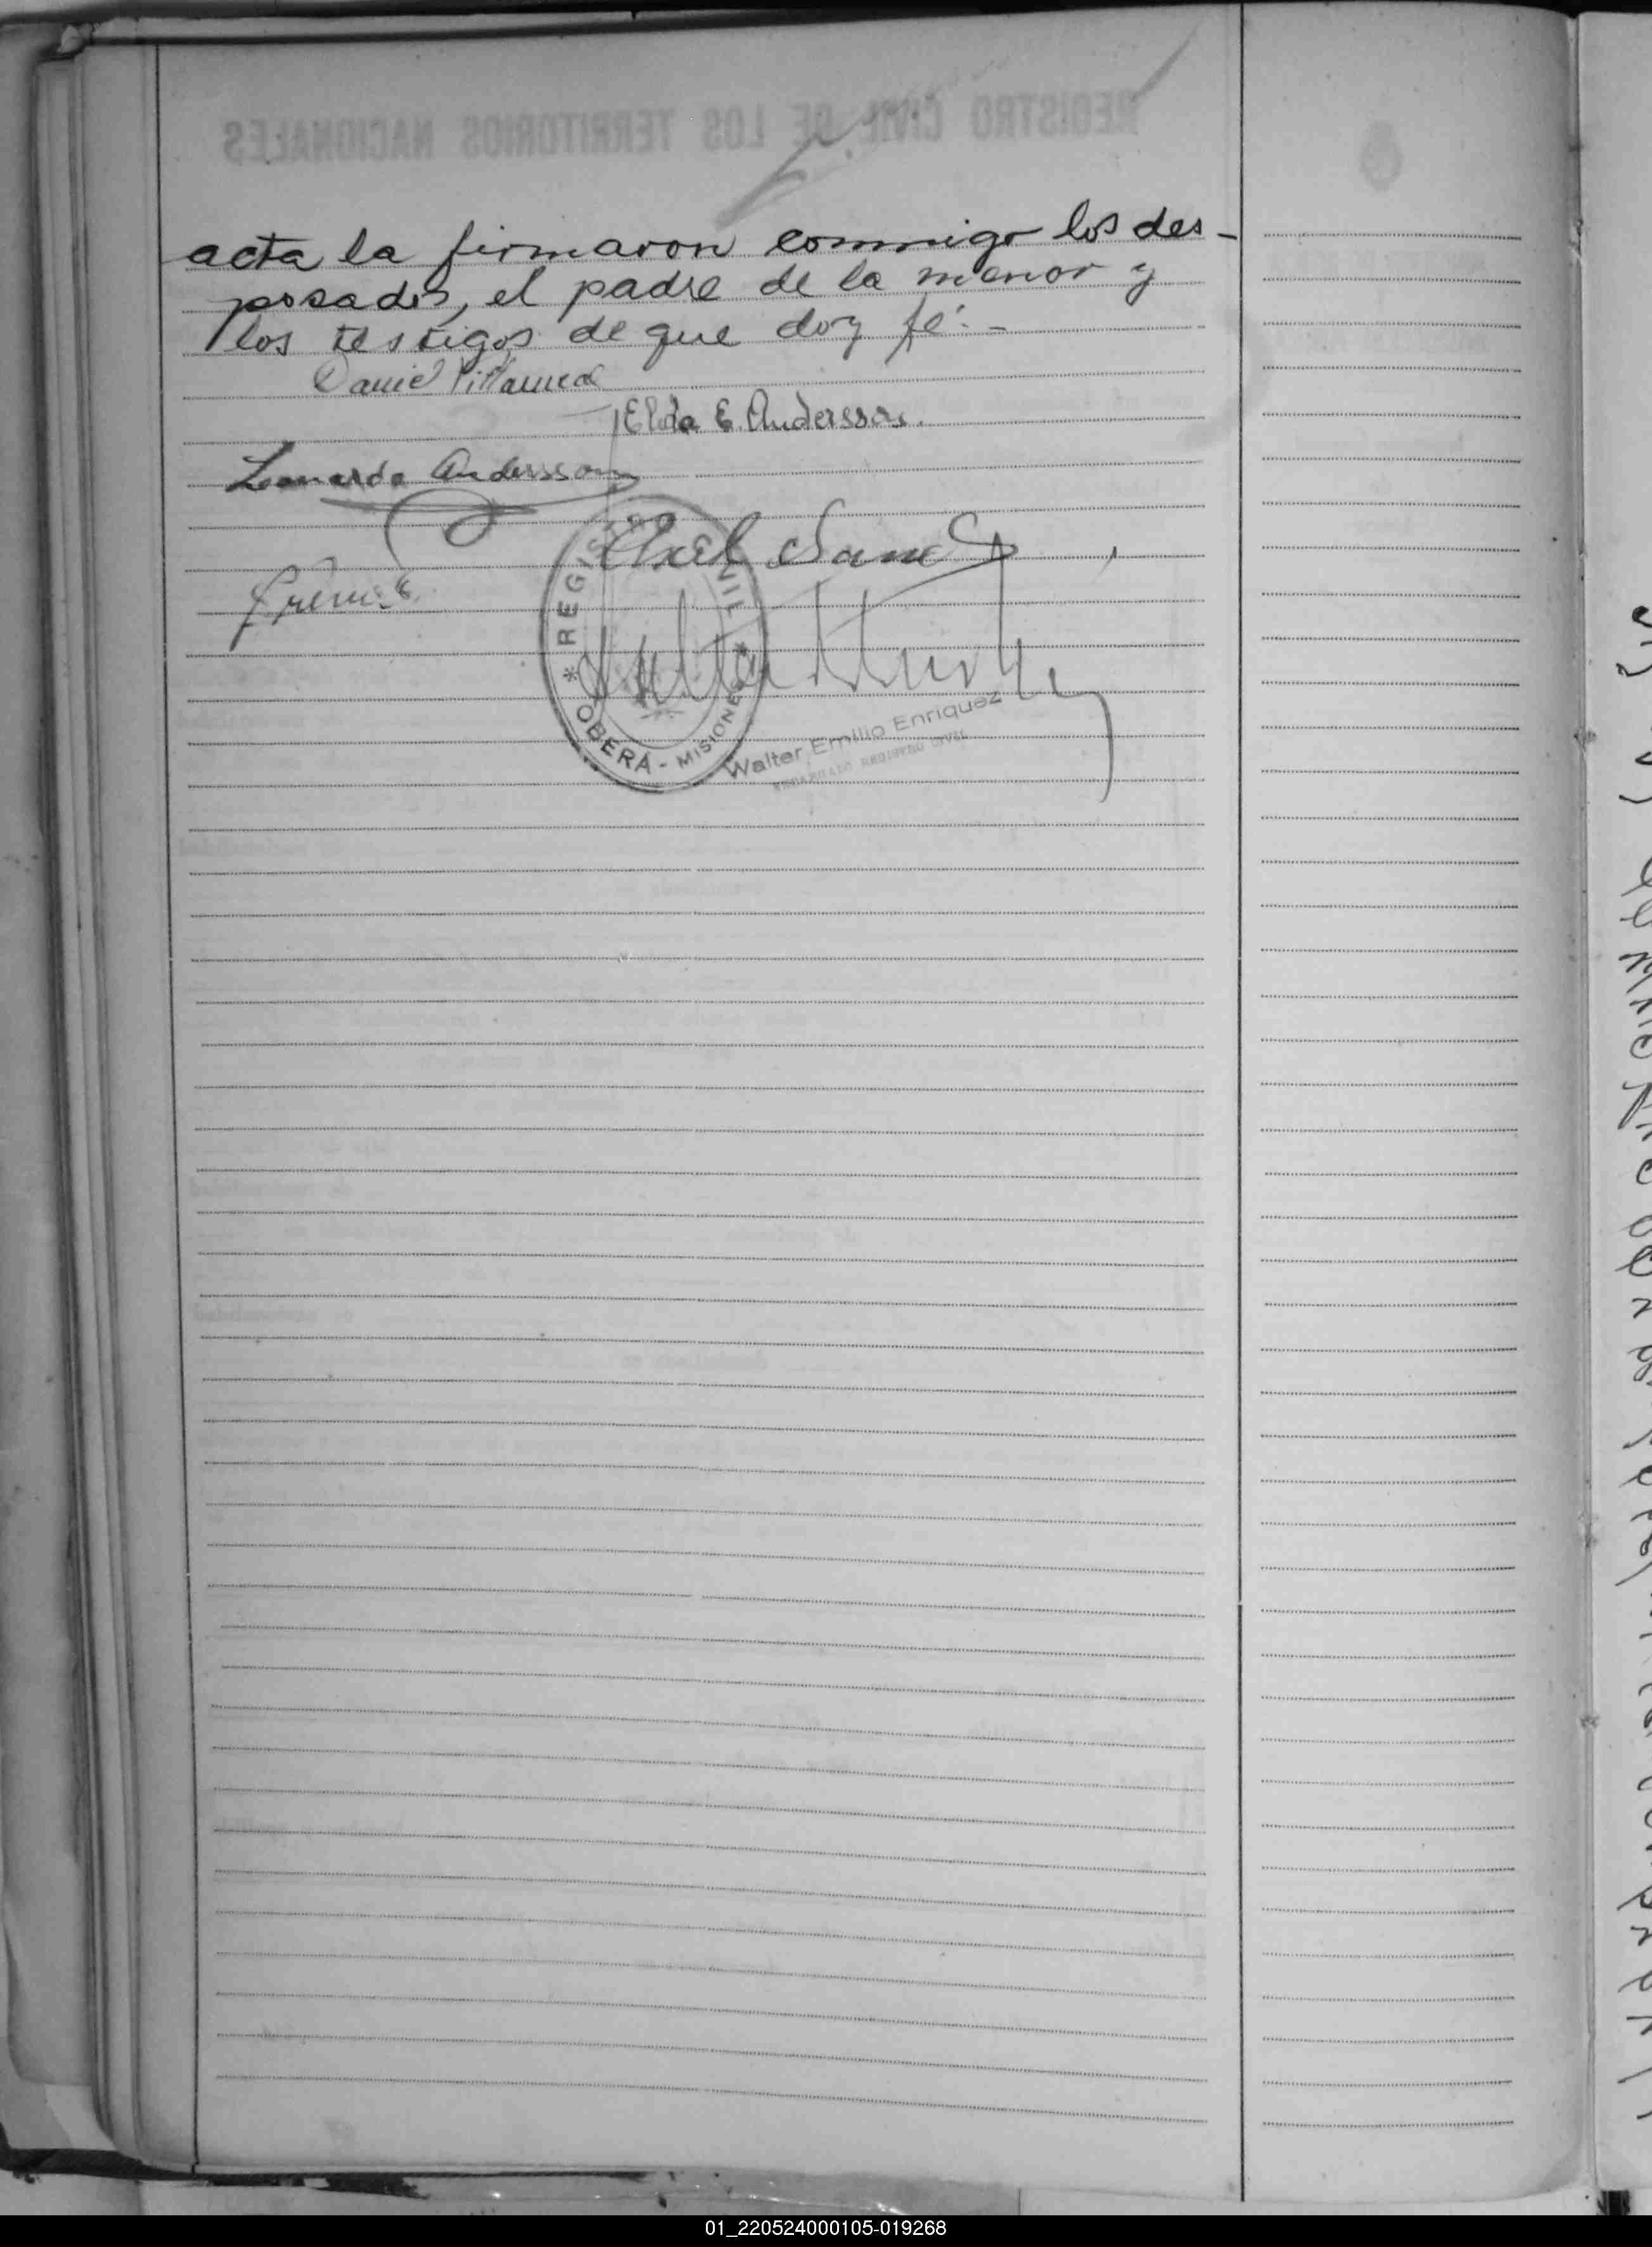 acta la firmaron conmigo los des-
posados, el padre de la menor y
los testigos de que doy fé.-
Daniel Villamea
Elda E. Andersson.
Leonardo Andersson
Axel Sand
* REGISTRO CIVIL *
OBERÁ - MISIONES
Walter Emilio Enriquez
ENCARGADO REGISTRO CIVIL
REGISTRO CIVIL DE LOS TERRITORIOS NACIONALES
01_220524000105-019268